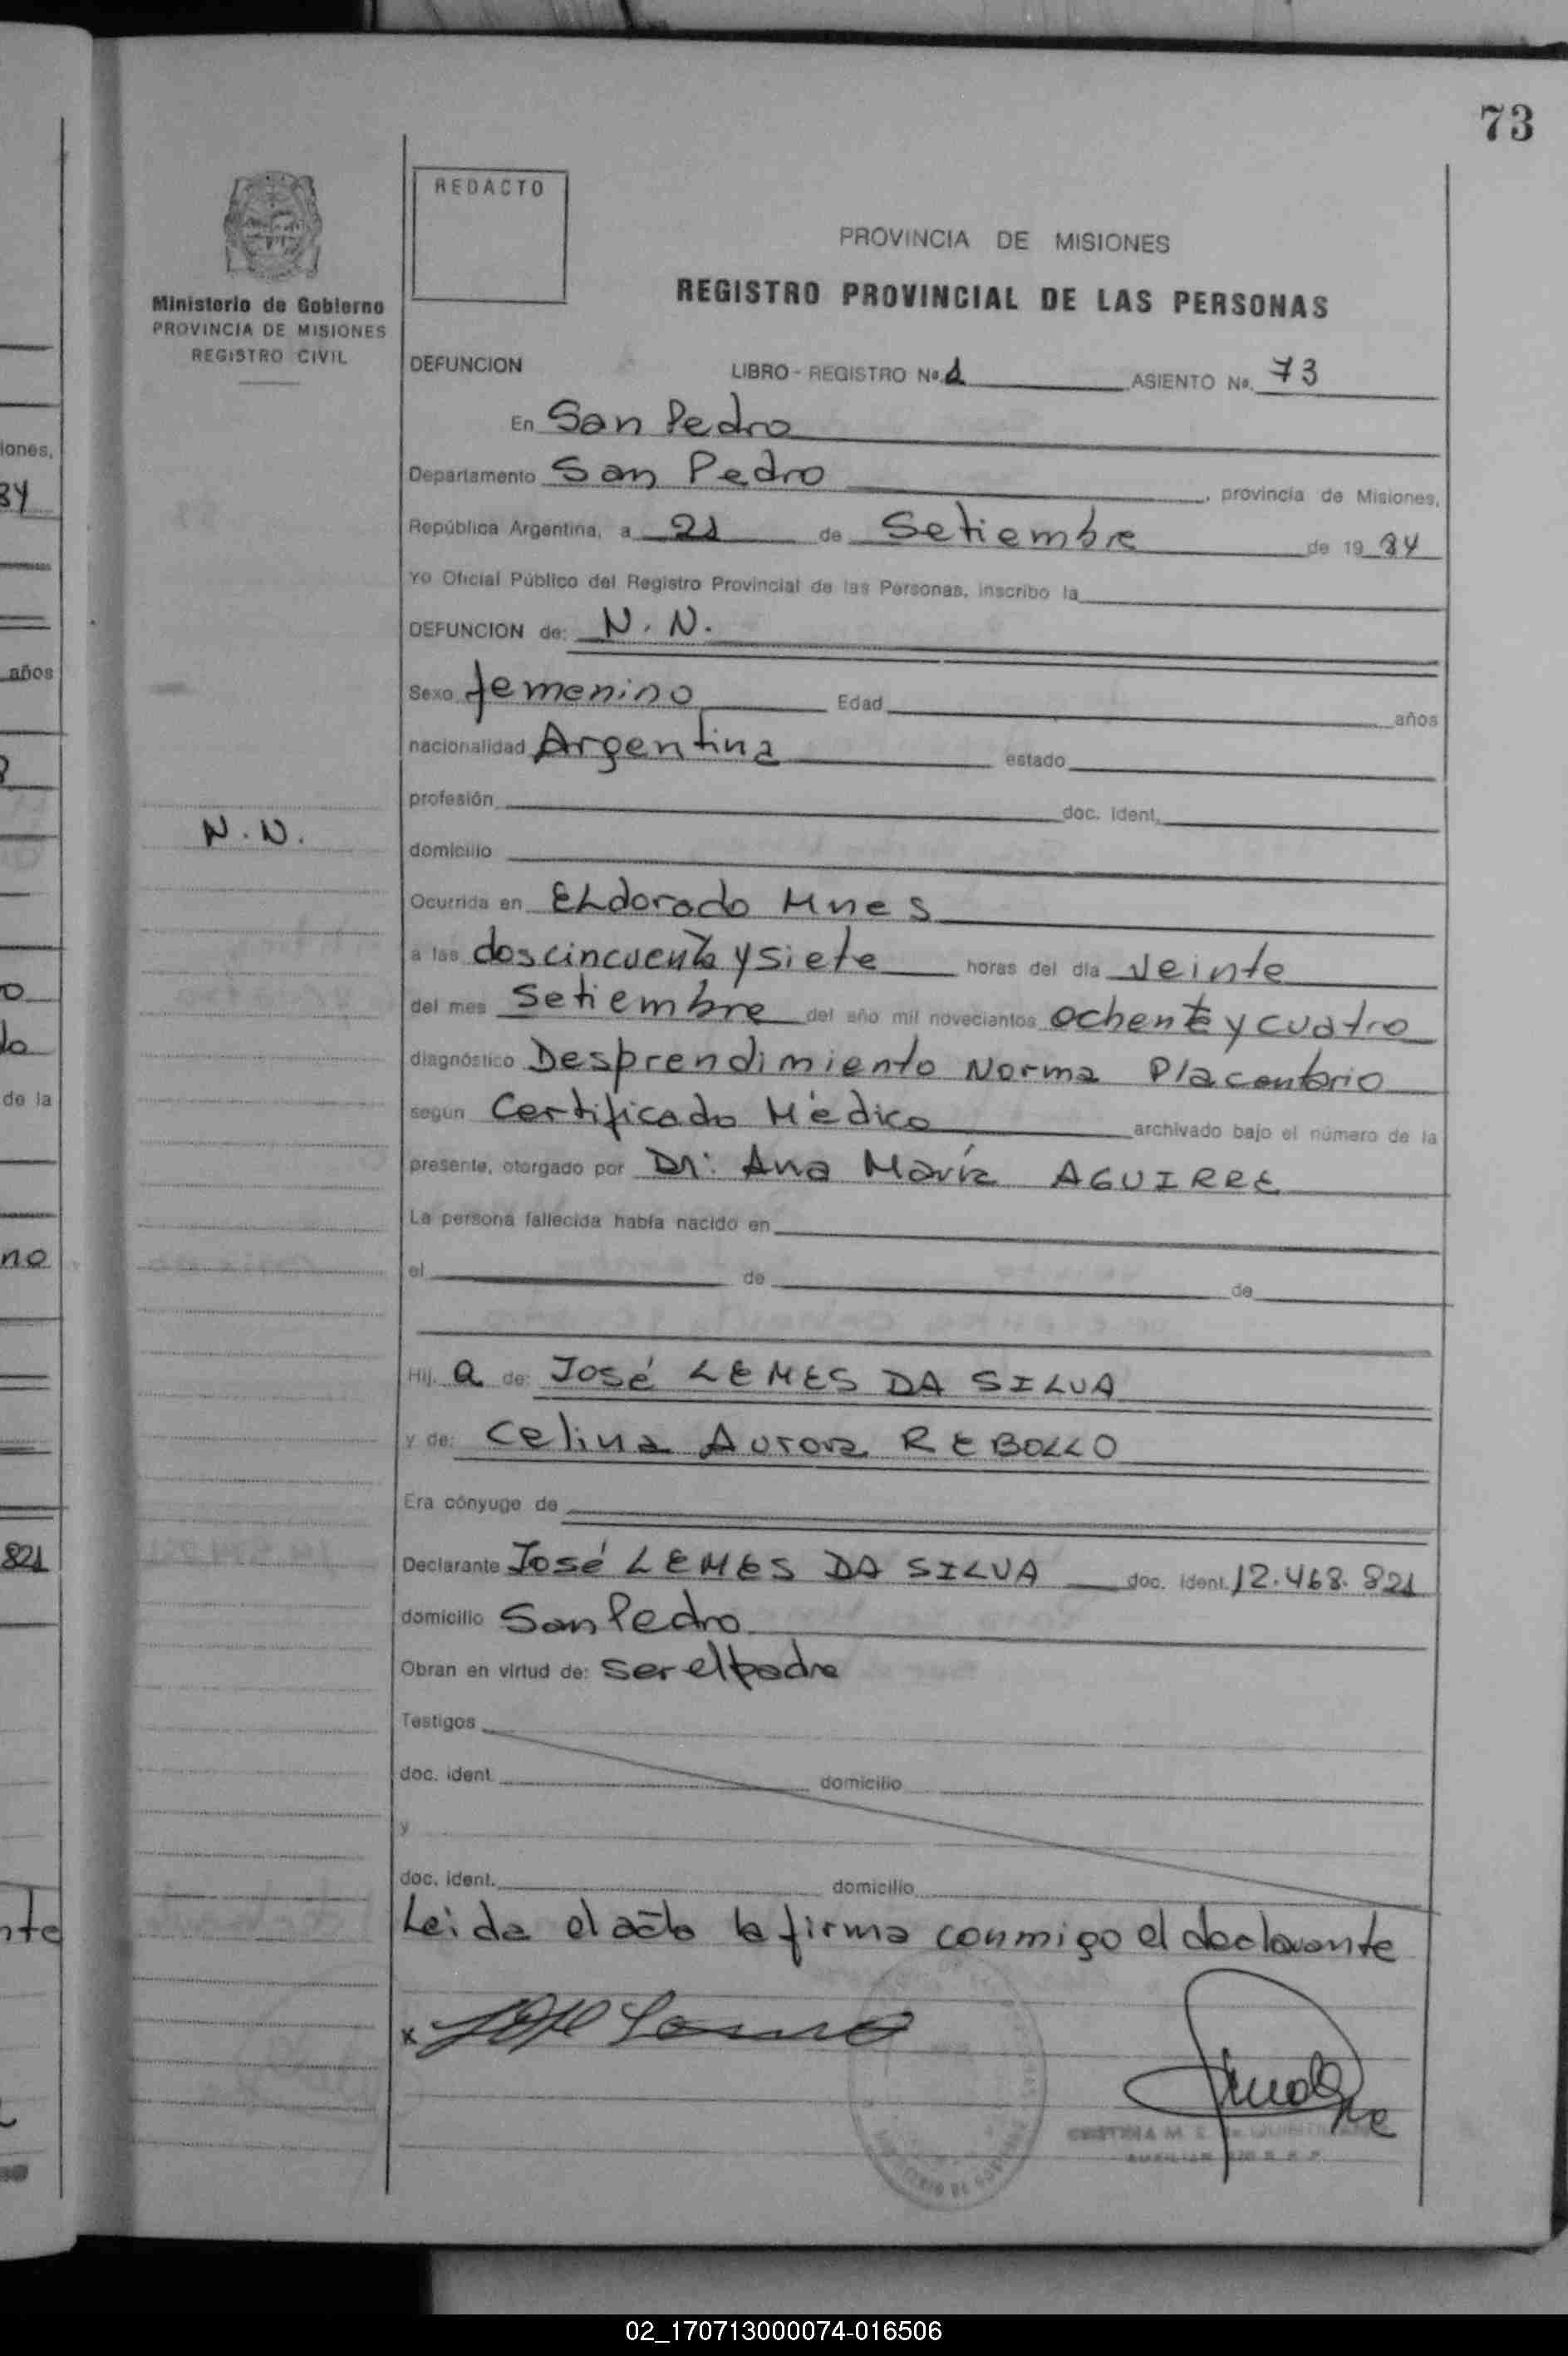 73
REDACTO
PROVINCIA DE MISIONES
REGISTRO PROVINCIAL DE LAS PERSONAS
Ministerio de Gobierno
PROVINCIA DE MISIONES
REGISTRO CIVIL
DEFUNCION LIBRO - REGISTRO Nº 1 ASIENTO Nº. 73
En San Pedro
Departamento San Pedro, provincia de Misiones,
República Argentina, a 21 de Setiembre de 19 84
Yo Oficial Público del Registro Provincial de las Personas, inscribo la
DEFUNCION de: N. N.
Sexo femenino Edad años
nacionalidad Argentina estado
profesión doc. ident.
N. N.
domicilio
Ocurrida en ELdorado Mnes
a las dos cincuenta y siete horas del día veinte
del mes Setiembre del año mil novecientos ochenta y cuatro
diagnóstico Desprendimiento Norma Placentario
según Certificado Médico archivado bajo el número de la
presente, otorgado por Dr: Ana María AGUIRRE
La persona fallecida había nacido en
el de de
Hij a de: José LEMES DA SILVA
y de: Celina Aurora REBOLLO
Era cónyuge de
Declarante José LEMES DA SILVA doc. ident. 12.468.821
domicilio San Pedro
Obran en virtud de: ser el padre
Testigos
doc. ident. domicilio
y
doc. ident. domicilio
Leida el acta la firma conmigo el declarante
x
CRISTINA M.
02_170713000074-016506
iones,
84
años
821
de la
no